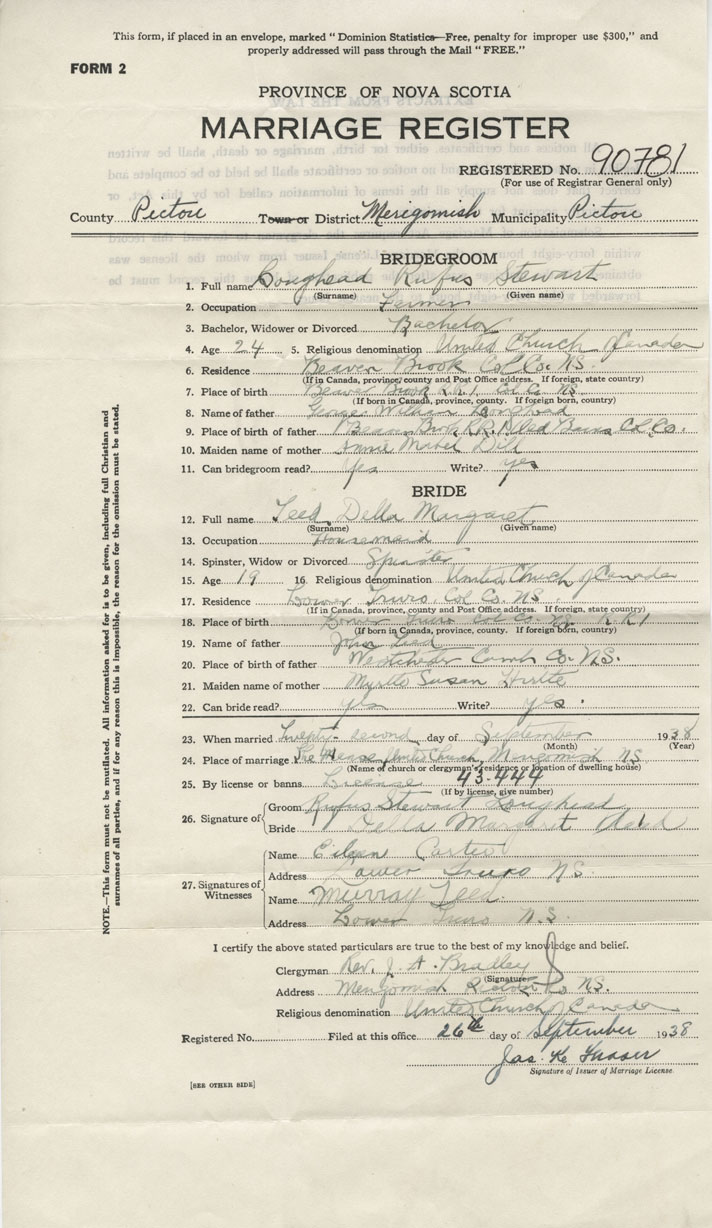 This form, if placed in an envelope, marked " Dominion Statistics—Free, penalty for improper use $300," and
properly addressed will pass through the Mail " FREE."
FORM 2
PROVINCE OF NOVA SCOTIA
MARRIAGE REGISTER
REGISTERED No. 90781
(For use of Registrar General only)
County Pictou Town or District Merigomish Municipality Pictou
BRIDEGROOM
1. Full name Loughead Rufus Stewart
(Surname) (Given name)
2. Occupation Farmer
3. Bachelor, Widower or Divorced Bachelor
4. Age 24 5. Religious denomination United Church of Canada
6. Residence Beaver Brook Col. Co. N.S.
(If in Canada, province, county and Post Office address. If foreign, state country)
7. Place of birth Beaver Brook R.R.1 Col. Co. N.S.
(If born in Canada, province, county. If foreign born, country)
8. Name of father George William Loughead
9. Place of birth of father Beaver Brook R.R. Col. Co.
10. Maiden name of mother Annie Mabel Dill
11. Can bridegroom read? Yes Write? yes
BRIDE
12. Full name Teed Della Margaret
(Surname) (Given name)
13. Occupation Housemaid
14. Spinster, Widow or Divorced Spinster
15. Age 19 16. Religious denomination United Church of Canada
17. Residence Lower Truro Col. Co. N.S.
(If in Canada, province, county and Post Office address. If foreign, state country)
18. Place of birth Lower Truro Col. Co. N.S. R.R.1
(If born in Canada, province, county. If foreign born, country)
19. Name of father John Teed
20. Place of birth of father Westchester Cumb Co. N.S.
21. Maiden name of mother Myrtle Susan
22. Can bride read? yes Write? yes
23. When married Twenty-second day of September 1938
(Month) (Year)
24. Place of marriage The Manse, United Church, Merigomish NS
(Name of church or clergyman's residence or location of dwelling house)
25. By license or banns License 43-444
(If by license, give number)
26. Signature of Groom Rufus Stewart Loughead
Bride Della Margaret Teed
27. Signatures of Witnesses
Name Eileen
Address Lower Truro N.S.
Name Murray Teed
Address Lower Truro N.S.
I certify the above stated particulars are true to the best of my knowledge and belief.
Clergyman Rev. J. A. Bradley
(Signature)
Address Merigomish N.S.
Religious denomination United Church of Canada
Registered No. Filed at this office 26th day of September 1938
Jas. K. Fraser
Signature of Issuer of Marriage License.
[SEE OTHER SIDE]
NOTE.—This form must not be mutilated. All information asked for is to be given, including full Christian and
surnames of all parties, and if for any reason this is impossible, the reason for the omission must be stated.